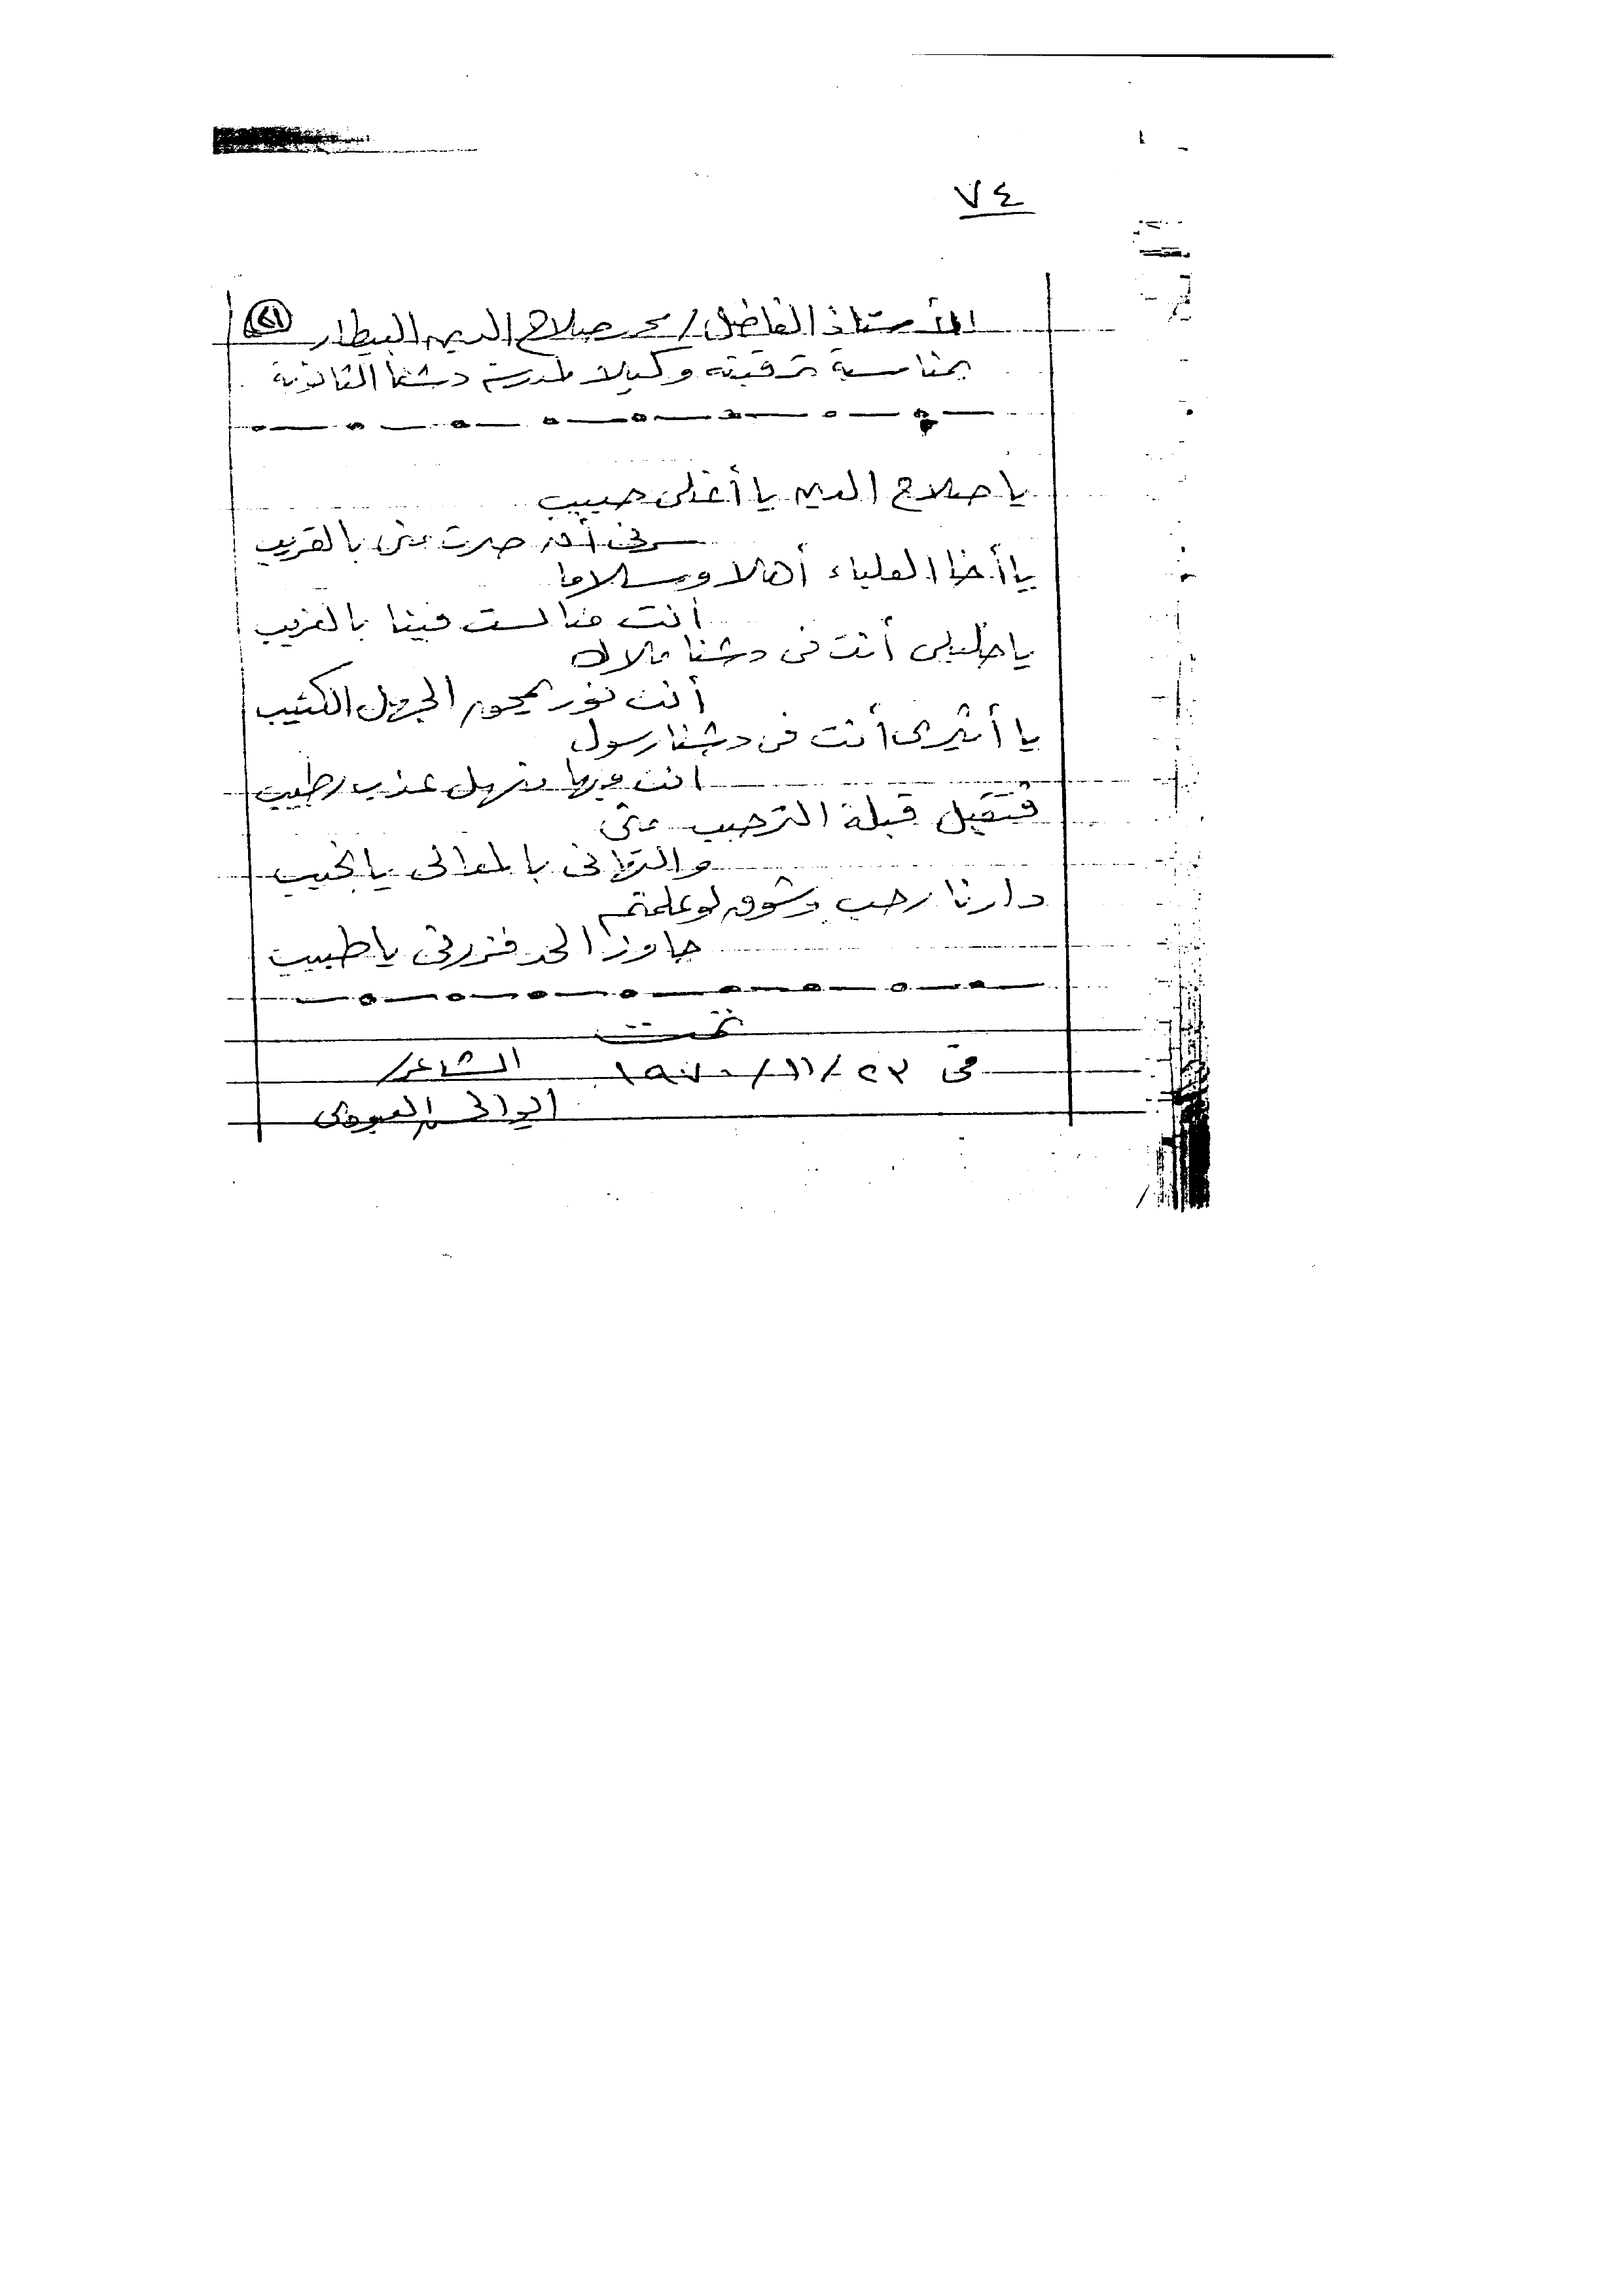 ٧٤
الأستاذ الفاضل / محمد صلاح الدين البيطار
بمناسبة ترقيته وكيلا لمدرسة دشنا الثانوية
يا صلاح الدين يا أغلى حبيب
سرنى أن صرت منى بالقريب
يا أخا العلياء أهلا وسلاما
أنت منا لست فينا بالغريب
يا خليلى أنت فى دشنا ملاك
أنت نور يمحو الجهل الكئيب
يا أثيرى أنت فى دشنا رسول
انت فيها منهل عذب رطيب
فتقبل قبلة الترحيب منى
والتهانى بالمعالى يا نجيب
دارنا رحب وشوق لو علمتم
جاوز الحد فزرنى يا طبيب
تمت
فى ٢٣ / ١١ / ١٩٧٠ الشاعر /